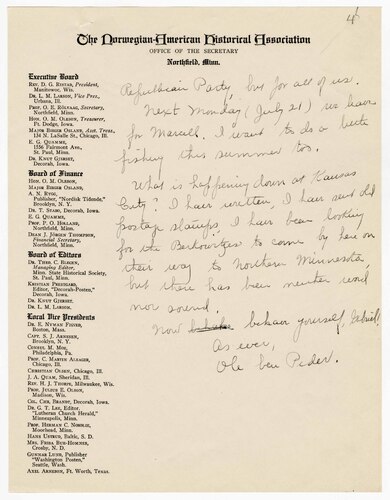 4
The Norwegian-American Historical Association
OFFICE OF THE SECRETARY
Northfield, Minn.
Executive Board
REV. D. G. RISTAD, President,
Manitowoc, Wis.
DR. L. M. LARSON, Vice Pres.,
Urbana, Ill.
PROF. O. E. RÖLVAAG, Secretary,
Northfield, Minn.
HON. O. M. OLESON, Treasurer,
Ft. Dodge, Iowa.
MAJOR BIRGER OSLAND, Asst. Treas.,
134 N. LaSalle St., Chicago, Ill.
E. G. QUAMME,
1556 Fairmont Ave.,
St. Paul, Minn.
DR. KNUT GJERSET,
Decorah, Iowa.
Board of Finance
HON. O. M. OLESON,
MAJOR BIRGER OSLAND,
A. N. RYGG,
Publisher, "Nordisk Tidende,"
Brooklyn, N. Y.
DR. T. STABO, Decorah, Iowa.
E. G. QUAMME,
PROF. P. O. HOLLAND,
Northfield, Minn.
DEAN J. JÖRGEN THOMPSON,
Financial Secretary,
Northfield, Minn.
Board of Editors
DR. THEO. C. BLEGEN,
Managing Editor,
Minn. State Historical Society,
St. Paul, Minn.
KRISTIAN PRESTGARD,
Editor, "Decorah-Posten,"
Decorah, Iowa.
DR. KNUT GJERSET,
DR. L. M. LARSON.
Local Vice Presidents
DR. E. NYMAN FIGVED,
Boston, Mass.
CAPT. S. J. ARNESEN,
Brooklyn, N. Y.
CONSUL M. MOE,
Philadelphia, Pa.
PROF. C. MARTIN ALSAGER,
Chicago, Ill.
CHRISTIAN OLSEN, Chicago, Ill.
J. A. QUAM, Sheridan, Ill.
REV. H. J. THORPE, Milwaukee, Wis.
PROF. JULIUS E. OLSON,
Madison, Wis.
COL. CHR. BRANDT, Decorah, Iowa.
DR. G. T. LEE, Editor,
"Lutheran Church Herald,"
Minneapolis, Minn.
PROF. HERMAN C. NORDLIE,
Moorhead, Minn.
HANS USTRUD, Baltic, S. D.
MRS. FRIDA BUE-HOMNER,
Crosby, N. D.
GUNNAR LUND, Publisher
"Washington Posten,"
Seattle, Wash.
AXEL ARNESON, Ft. Worth, Texas.
Republican Party, but for all of us.
Next Monday (July 21) we leave
for Marcell. I want to do a little
fishing this summer too.
What is happening down at Kansas
City? I have written, I have sent
postage stamps, I have been looking
for the Berkowitzes to come by here on
their way to Northern Minnesota
but there has been neither word
nor sound.
Now behave yourself,
As ever,
Ole ben Peder.